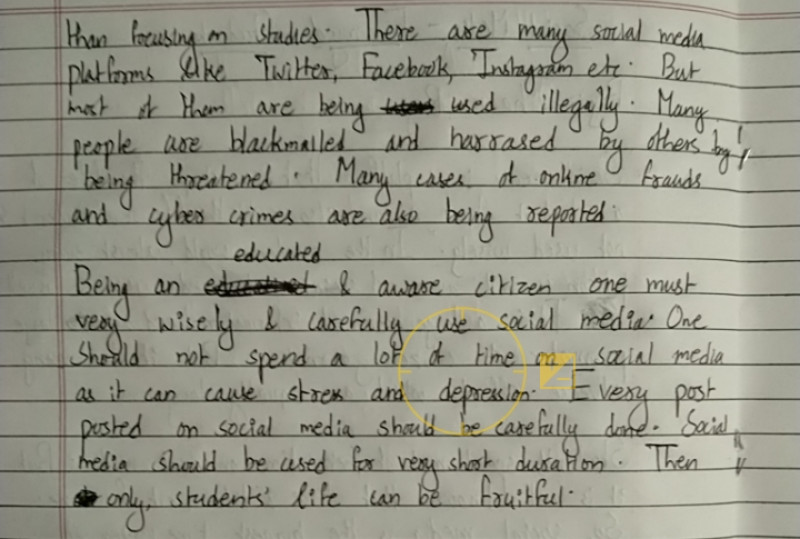 than focusing on studies. There are many social media
platforms like Twitter, Facebook, Instagram etc. But
most of them are being used illegally. Many
people are blackmailed and harrased by others by
being threatened. Many cases of online frauds
and cyber crimes are also being reported.
educated
Being an & aware citizen one must
very wisely & carefully use social media. One
should not spend a lot of time on social media
as it can cause stress and depression. Every post
posted on social media should be carefully done. Social
media should be used for very short duration. Then
only, students' life can be fruitful.